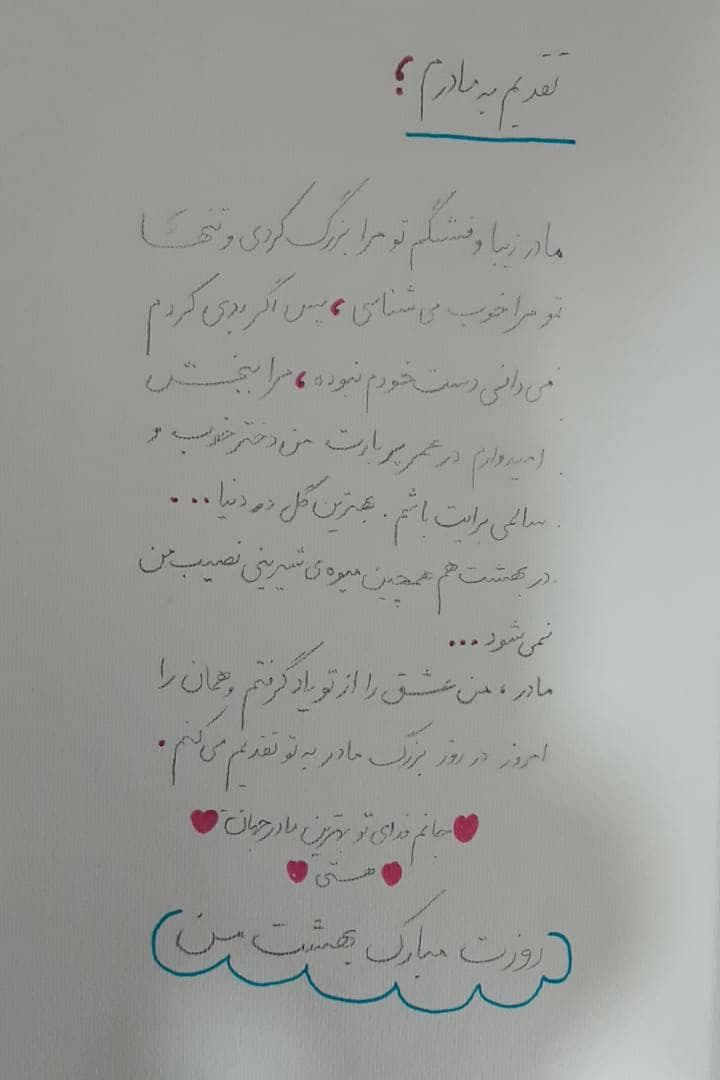 تقدیم به مادرم ؛
مادر زیبا و قشنگم تو مرا بزرگ کردی و تنها
تو مرا خوب می شناسی ، پس اگر بدی کردم
می دانی دست خودم نبوده ، مرا ببخش
امیدوارم در عمر پر بارت من دختر خوب و
سالمی برایت باشم . بهترین گل در دنیا ...
در بهشت هم همچین میوه ی شیرینی نصیب من
نمی شود ...
مادر ، من عشق را از تو یاد گرفتم و همان را
امروز در روز بزرگ مادر به تو تقدیم می کنم .
جانم فدای تو بهترین مادر جهان
هستی
روزت مبارک بهشت من